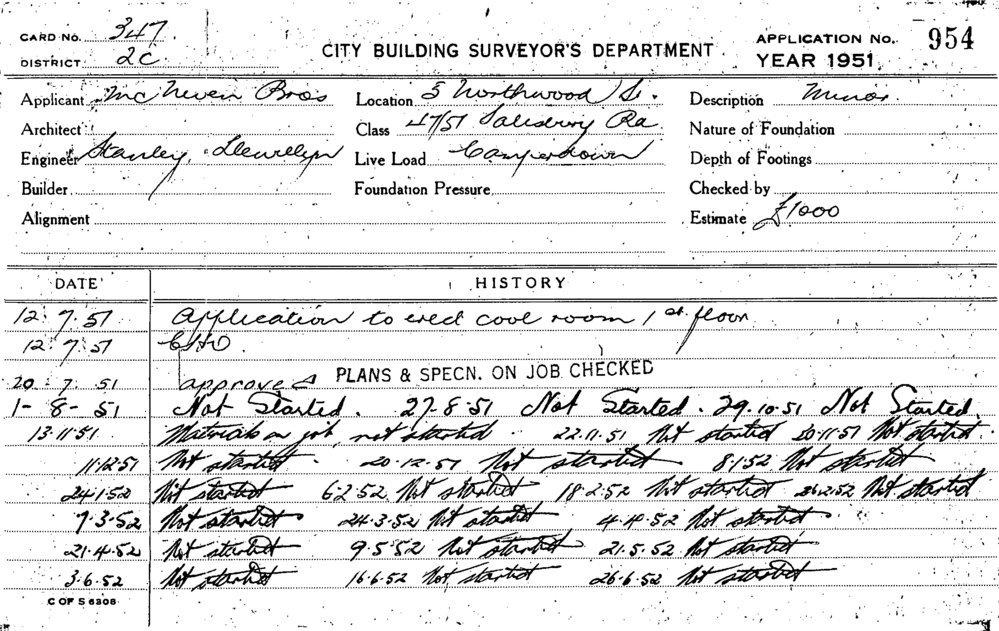 CARD No. 347
DISTRICT. 2C
CITY BUILDING SURVEYOR'S DEPARTMENT.
APPLICATION No. 954
YEAR 1951.
Applicant McNeven Bros Location 5 Northwood St. Description Minor.
Architect Class 47/51 Salisbury Rd Nature of Foundation
Engineer Stanley Llewellyn Live Load Camperdown Depth of Footings
Builder Foundation Pressure Checked by
Alignment Estimate £1000
DATE HISTORY
12.7.51 Application to erect cool room 1st floor
12.7.51 CHO.
20.7.51 approved PLANS & SPECN. ON JOB CHECKED
1-8-51 Not Started. 27-8-51 Not Started. 29.10.51 Not Started.
13.11.51 Materials on job, not started 22.11.51 Not started 30.11.51 Not started.
11.12.51 Not started. 20.12.51 Not started 8.1.52 Not started
24.1.52 Not started 6.2.52 Not started 18.2.52 Not started 26.2.52 Not started
7.3.52 Not started 24.3.52 Not started 4.4.52 Not started
21.4.52 Not started 9.5.52 Not started 21.5.52 Not started
3.6.52 Not started 16.6.52 Not started 26.6.52 Not started
C OF S 6308